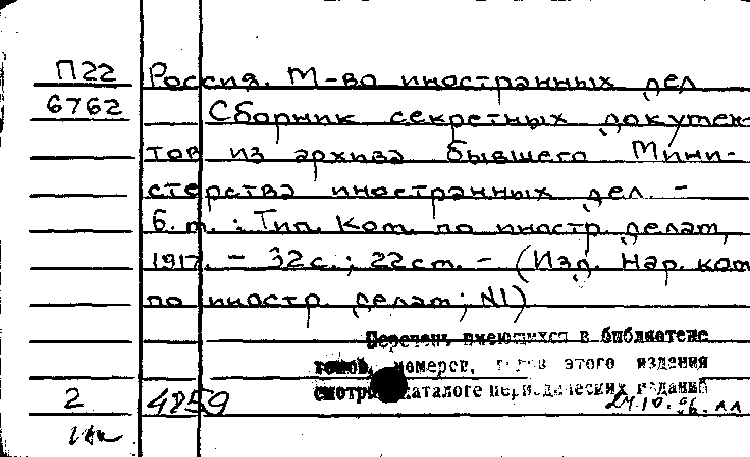 П22 Россия. М-во иностранных дел
6762 Сборник секретных докумен-
тов из архива бывшего Мини-
стерства иностранных дел. -
Б.м. : Тип. Ком. по иностр. делам,
1917. - 32 с. ; 22 см. - (Изд. Нар. ком.
по иностр. делам ; N1)
Перечень имеющихся в библиотеке
томов, номеров, этого издания
смотри каталоге периодических изданий
2 4859 24.10.96.